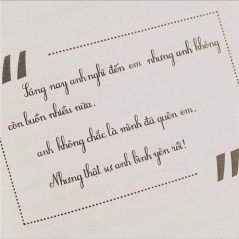 Sáng nay anh nghĩ đến em nhưng anh không
còn buồn nhiều nữa.
anh không chắc là mình đã quên em.
Nhưng thật sự anh bình yên rồi!